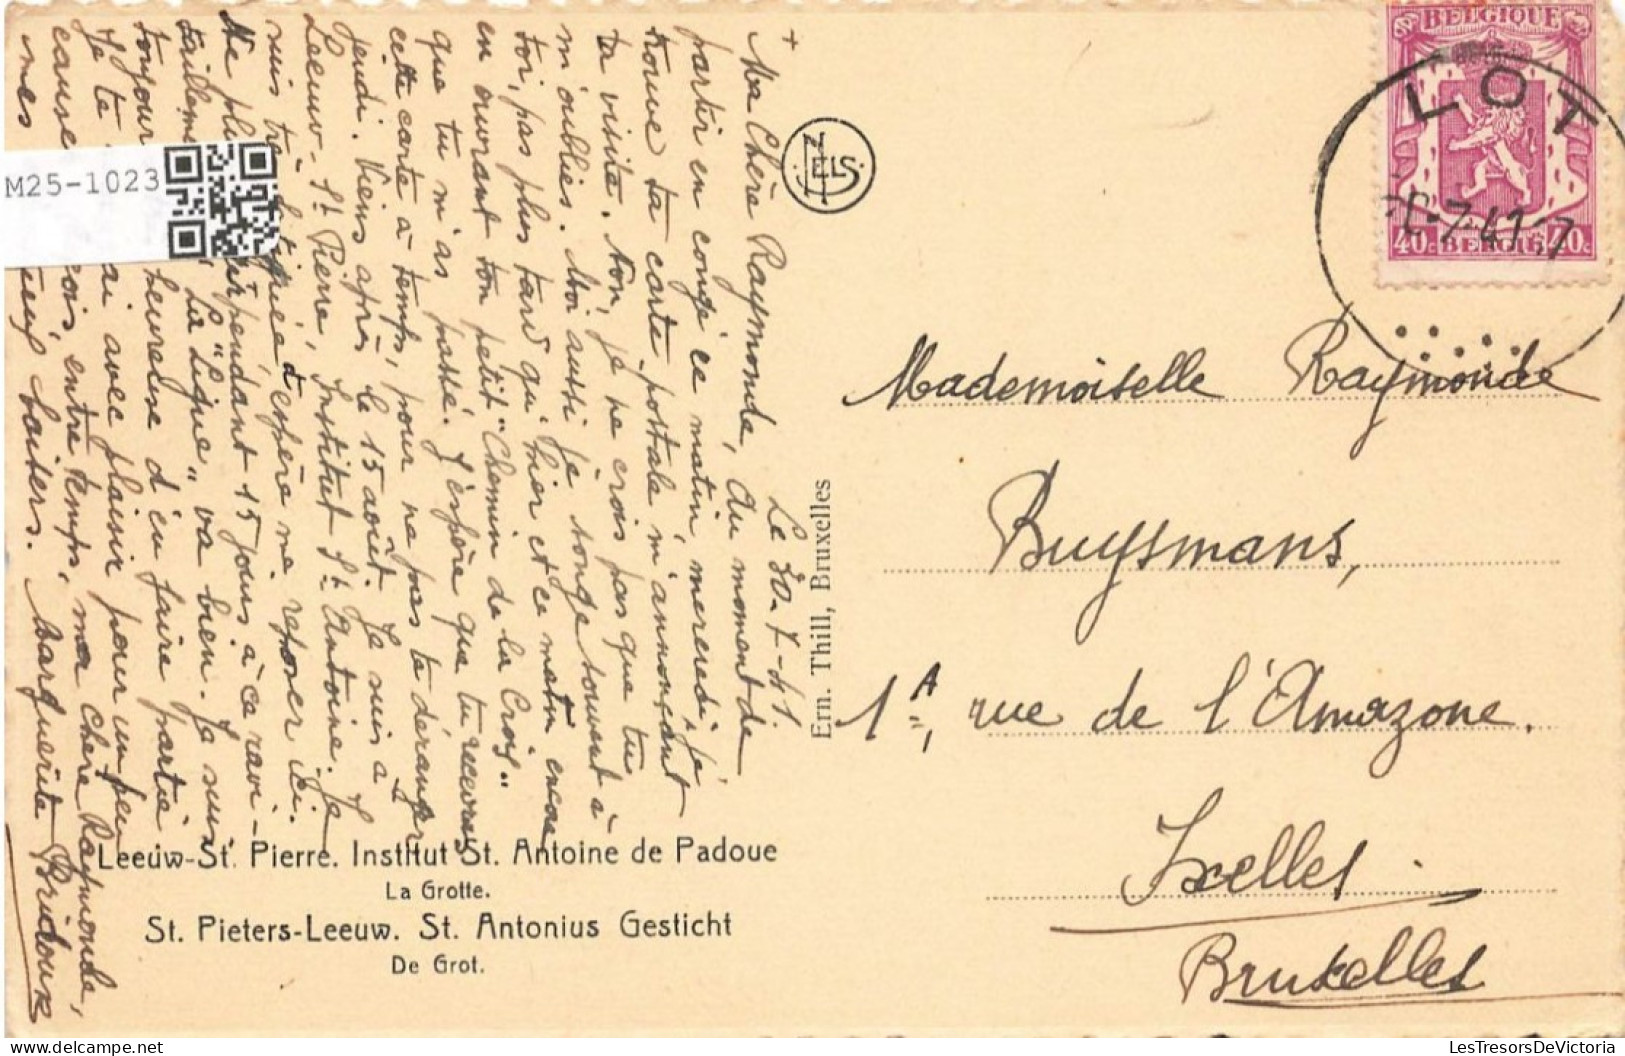 +
Le 30-7-41.
Ma Chère Raymonde, Au moment de
partir en congé ce matin mercredi, j'ai
trouvé ta carte postale m'annonçant
ta visite. Non, je ne crois pas que tu
m'oublies. Moi aussi je songe souvent à
toi, pas plus tard qu'hier et ce matin encore
en ouvrant ton petit "Chemin de la Croix"
que tu m'as passé. J'espère que tu recevras
cette carte à temps, pour ne pas te déranger
jeudi. Viens après le 15 août. Je suis à
Leeuw-St Pierre, Institut St Antoine. Je
suis très fatiguée et espère me reposer ici.
Ne plus pendant 15 jours à ce ravi-
taillement
La "Ligue" va bien. Je suis
toujours heureuse d'en faire partie
Je te avec plaisir pour un peu
causer entre temps, ma chère Raymonde,
mes baisers. Marguerite Bridoux
M25-1023
NELS
Ern. Thill, Bruxelles
Leeuw-St. Pierre. Institut St. Antoine de Padoue
La Grotte.
St. Pieters-Leeuw. St. Antonius Gesticht
De Grot.
BELGIQUE
40c BELGIË 40c
LOT
Mademoiselle Raymonde
Buysmans,
1A, rue de l'Amazone.
Ixelles.
Bruxelles
LesTresorsDeVictoria